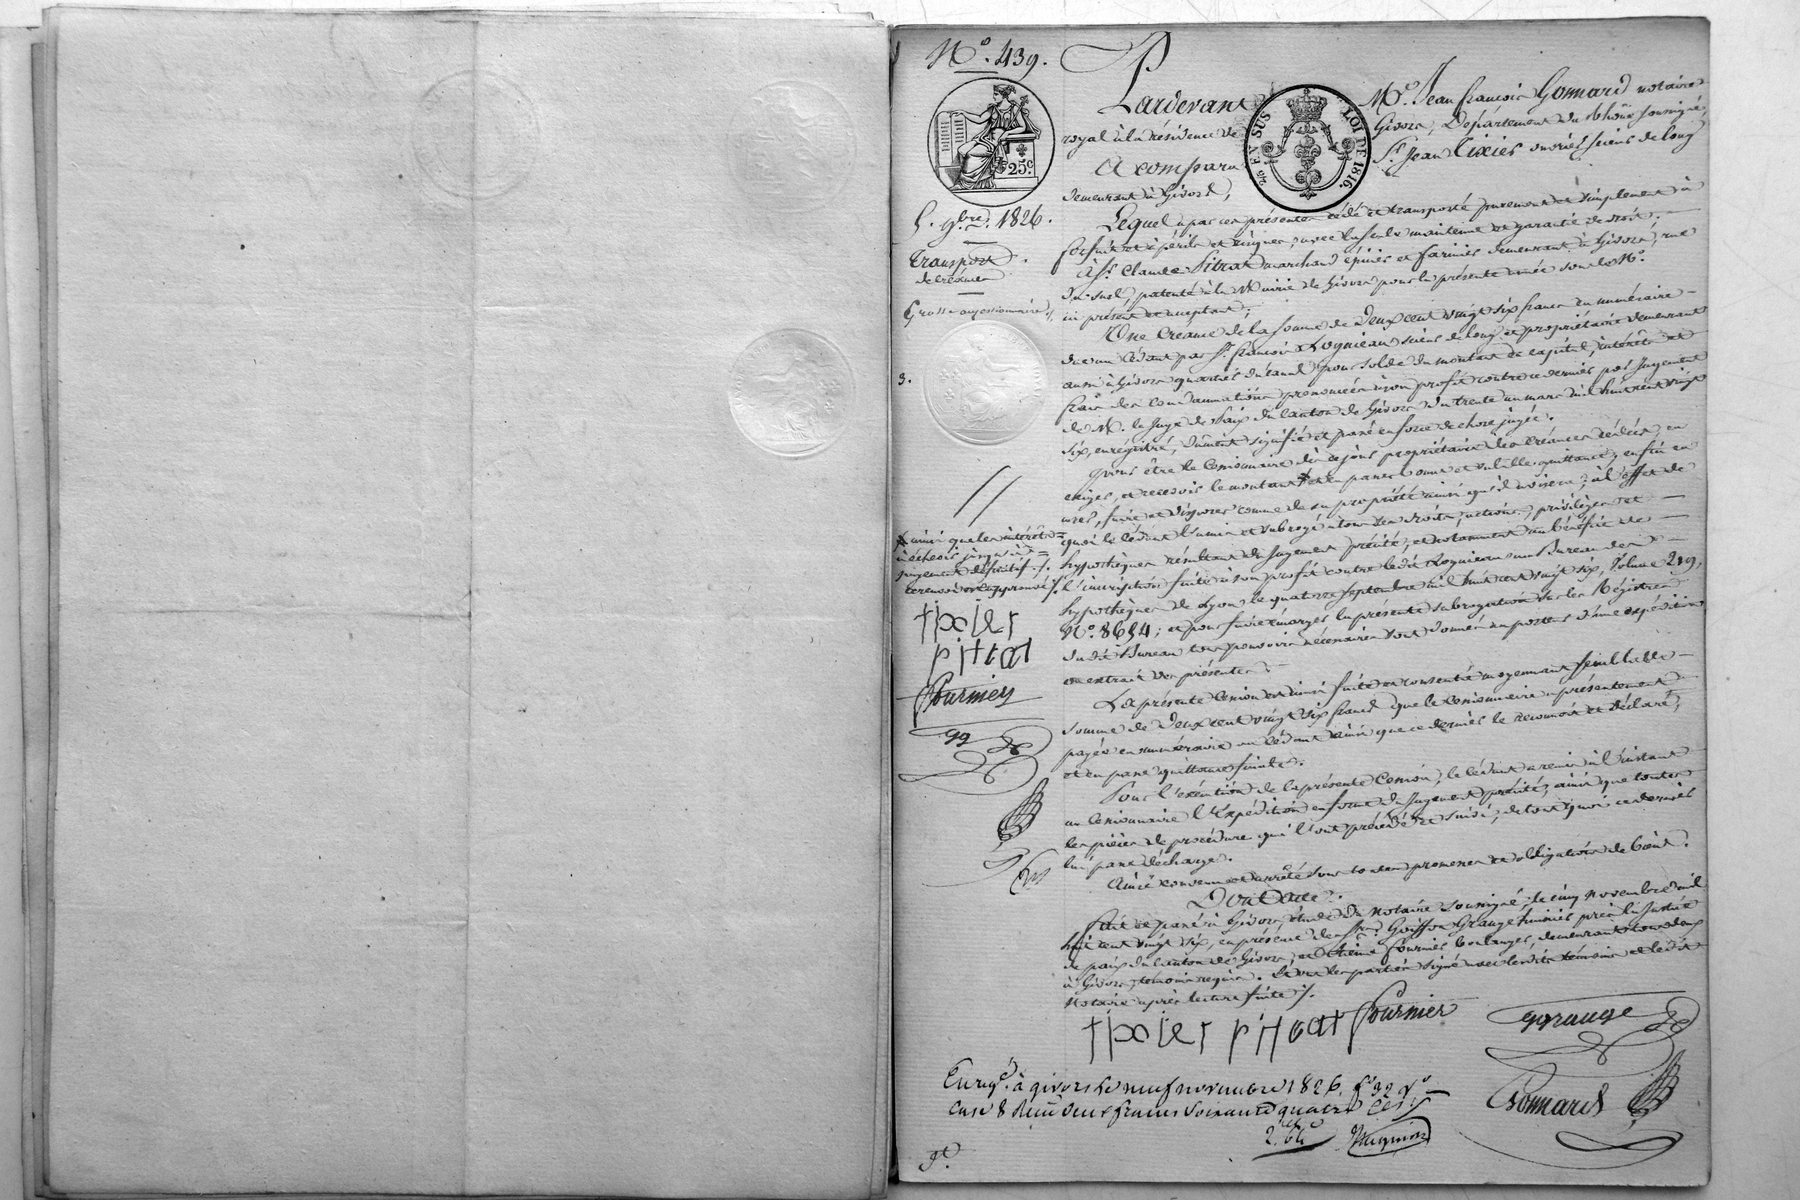 N.° 439.
25c
5. 9bre 1826.
Transport
de créances
Grosse au cessionnaire
3.
24 EN SUS LOI DE 1816.
Pardevant Me. Jean françois Gonnard notaire
royal à la résidence de Givors, Département du Rhône soussigné,
A comparu Sr. Jean Tixier ouvrier scieur de long
demeurant à Givors,
Lequel a par ces présentes cédé et transporté purement et simplement à
forfait et à périls et risques, avec la seule maintenue et garantie de droit.
à Sr. Claude Pitrat marchand épicier et farinier demeurant à Givors, rue
du suel, patenté à la Mairie de Givors pour la présente année sous le N°.
ici présent et acceptant;
Une Créance de la somme de Deux cent vingt six francs en numéraire
due au Cédant par Sr. françois Rognieau scieur de long et propriétaire demeurant
aussi à Givors quartier du canal pour solde du montant de capital, intérêts et
frais des condamnations prononcées à son profit contre ce dernier par Jugement
de M. le Juge de Paix du Canton de Givors du trente un mars mil huit cent vingt
six, enregistré, dûment signifié et passé en force de chose jugée.
Pour être le Cessionnaire dès ce jour propriétaire des créances cédées, en
exiger, et recevoir le montant et en passer bonne et valable quittance; enfin en
user, faire et disposer comme de sa propriété ainsi qu'il avisera; à l'effet de
quoi le Cédant l'a mis et subrogé à tous ses droits, actions, privilèges et
hypothèques résultant du Jugement précité, et notamment au bénéfice de
l'inscription faite à son profit contre ledit Rognieau au Bureau des
hypothèques de Lyon le quatorze septembre mil huit cent vingt six, Volume 219,
N°. 8654; et pour faire émarger la présente subrogation sur les Registres
dudit Bureau tous pouvoirs nécessaires sont donnés au porteur d'une expédition
ou extrait des présentes.
ainsi que les intérêts
à échoir jusqu'à
payement définitif ./.
le renvoi ci approuvé ./.
tixier
pitrat
fournier
gg
La présente Cession est ainsi faite et consentie moyennant semblable
somme de Deux cent vingt six francs que le Cessionnaire a présentement
payée en numéraire au Cédant ainsi que ce dernier le reconnoit et déclare,
et en passe quittance finale.
Pour l'exécution de la présente Cession, le Cédant a remis à l'instant
au Cessionnaire l'Expédition en forme du Jugement précité, ainsi que toutes
les pièces de procédure qui l'ont précédé et suivi, de tout quoi ce dernier
lui passe décharge.
Ainsi convenu et arrêté sous toutes promesses et obligations de biens.
Dont Acte.
Fait et passé à Givors, étude du Notaire soussigné, le cinq novembre mil
huit cent vingt six, en présence de Grange huissier près la Justice
de paix du canton de Givors, et Etienne fournier boulanger, demeurant tous deux
à Givors, témoins requis. Et ont les parties signé avec lesdits témoins et ledit
Notaire après lecture faite ./.
tixier pitrat fournier ggrange
Gonnard
Enregé. à givors le neuf novembre 1826 fo 32 Vo
case 8 Reçu deux francs soixante quatre ces.
2.f 64c